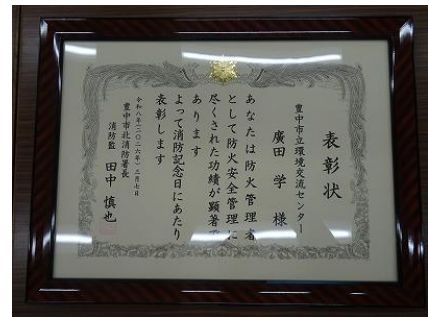 表彰状
豊中市立環境交流センター
廣田 学 様
あなたは防火管理者
として防火安全管理に
尽くされた功績が顕著で
あります
よって消防記念日にあたり
表彰します
令和八年(二〇二六年)三月七日
豊中市北消防署長
消防監 田中 慎也